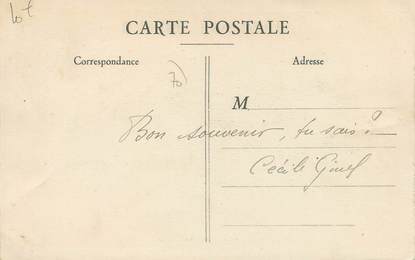 lot
CARTE POSTALE
Correspondance
Adresse
70
M
Bon souvenir, tu sais?
Cécile